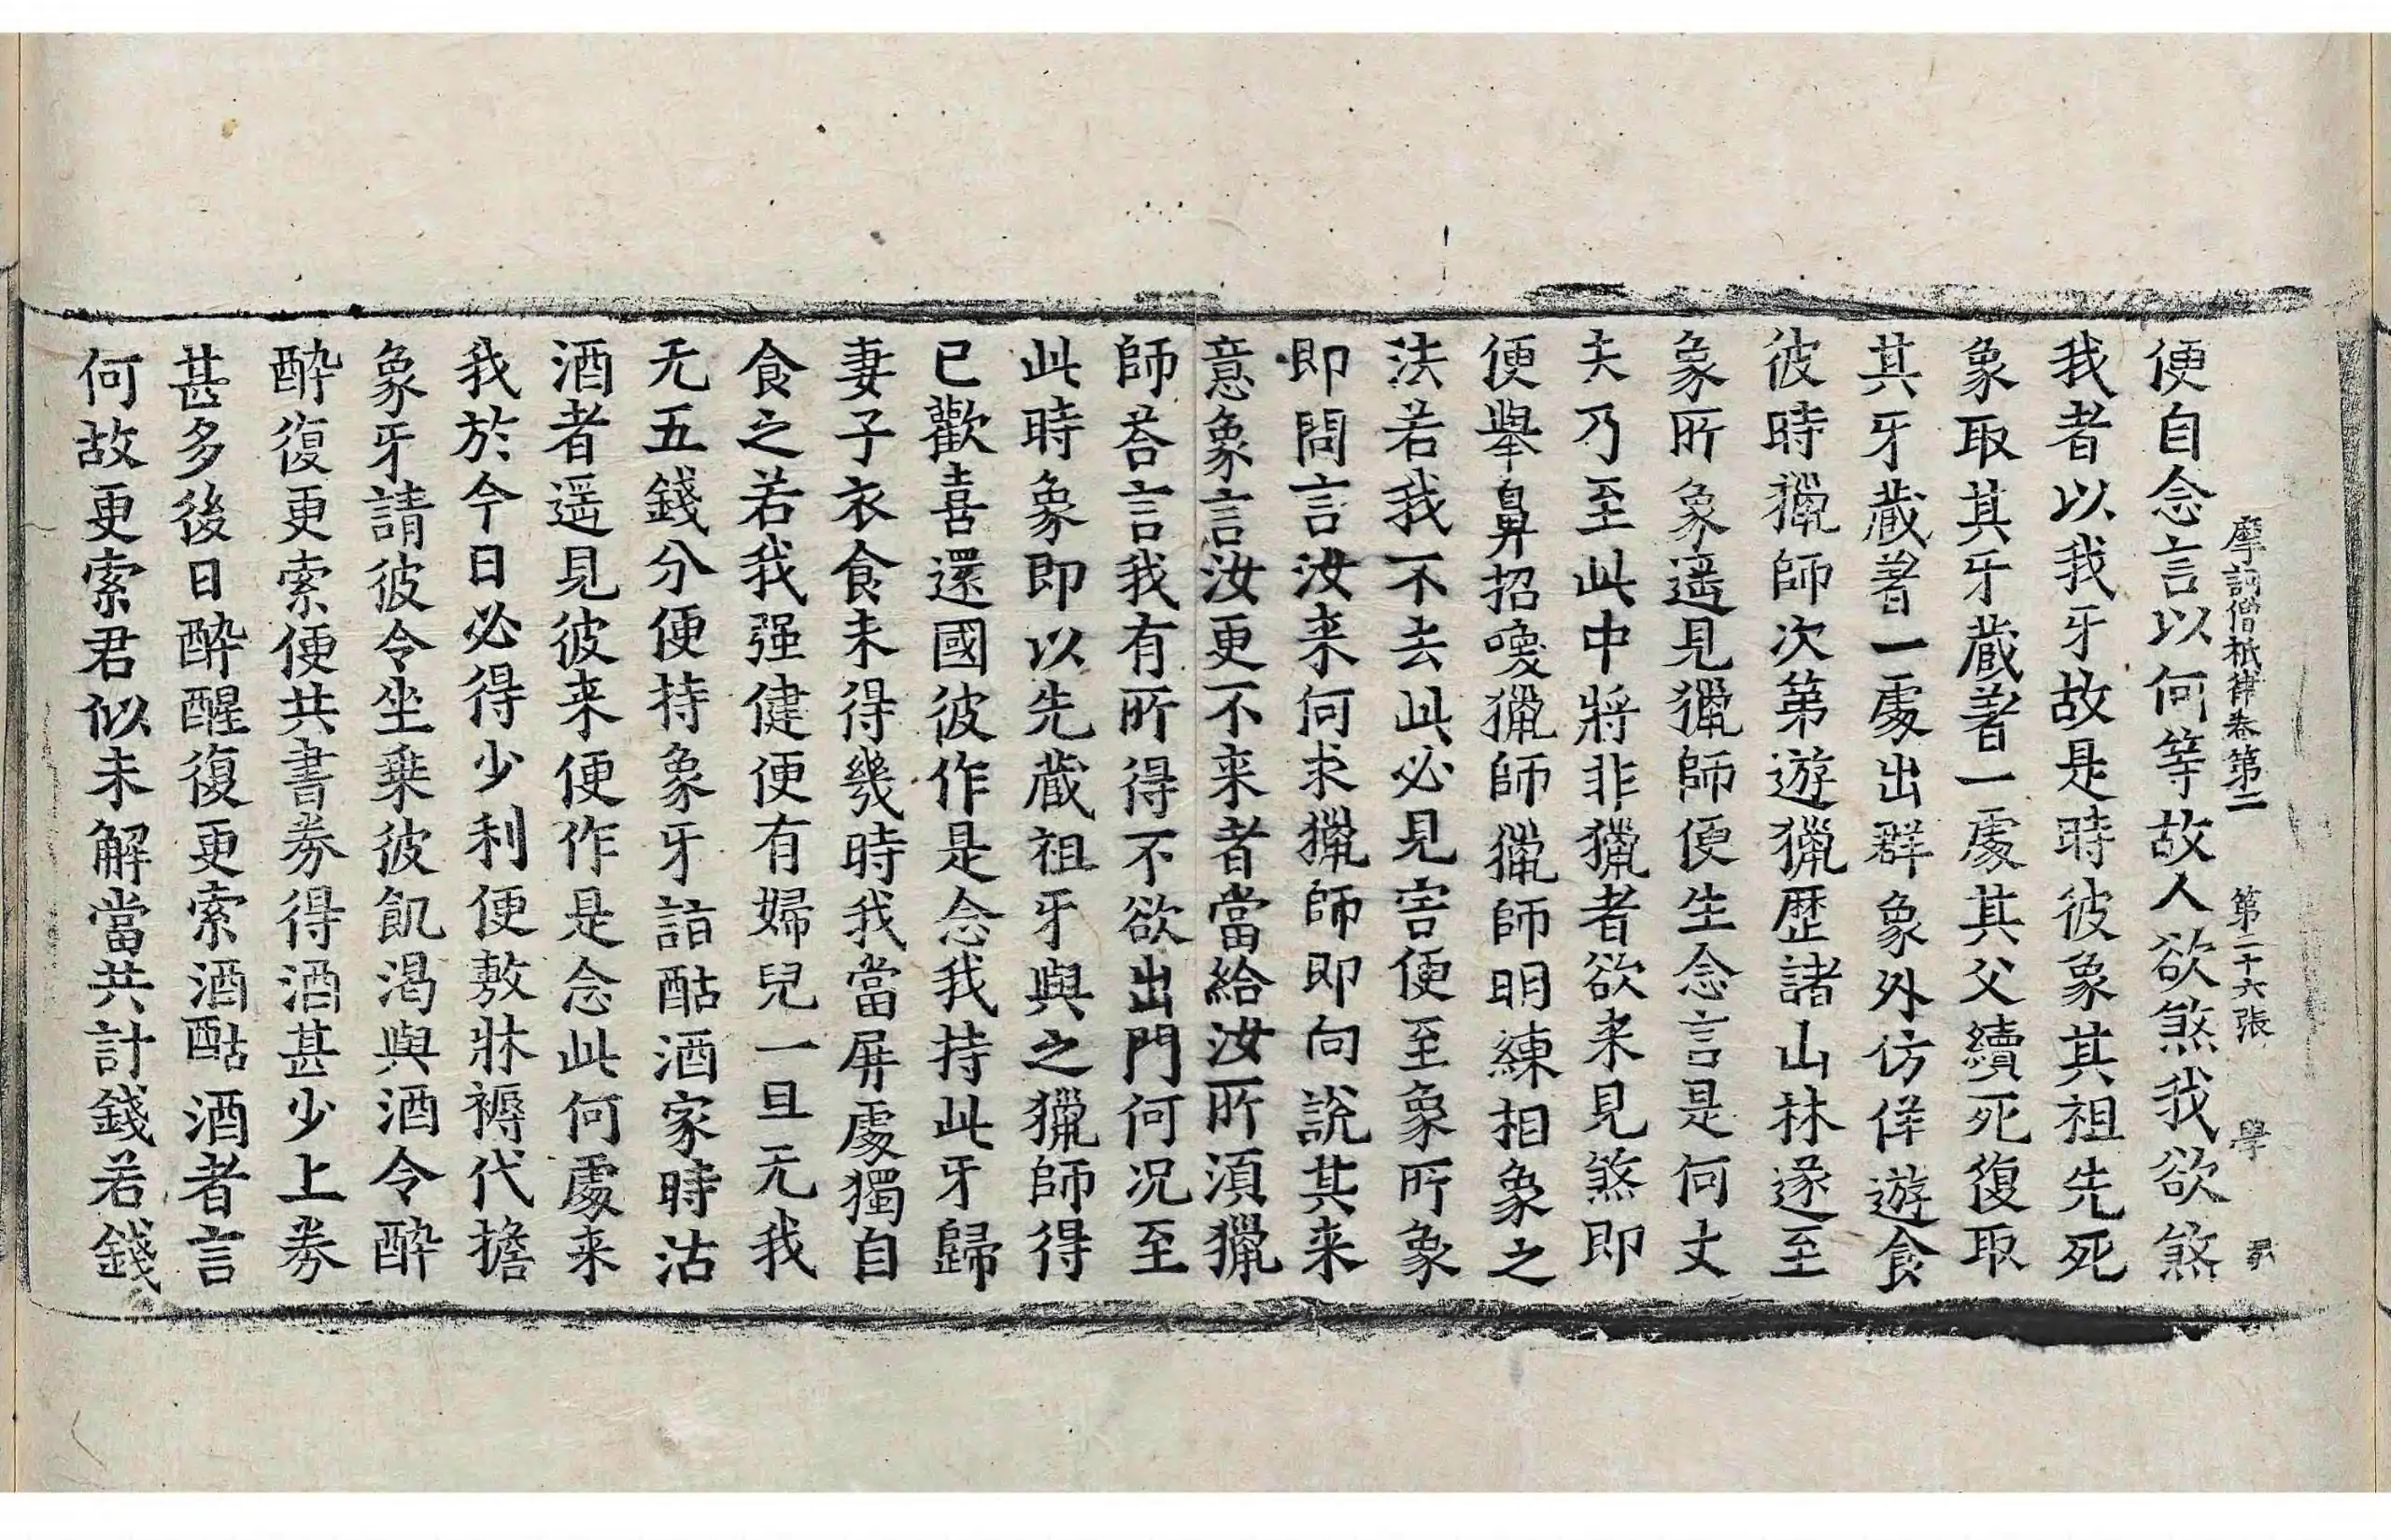 摩訶僧祇律卷第二 第二十六張 學
便自念言以何等故人欲煞我欲煞
我者以我牙故是時彼象其祖先死
象取其牙蔵著一處其父續死復取
其牙蔵著一處出群象外仿佯遊食
彼時獵師次第遊獵歷諸山林遂至
象所象遥見獵師便生念言是何丈
夫乃至此中將非獵者欲来見煞即
便舉鼻招喚獵師獵師明練相象之
法若我不去此必見害便至象所象
即問言汝来何求獵師即向說其来
意象言汝更不来者當給汝所湏獵
師荅言我有所得不欲出門何况至
此時象即以先蔵祖牙與之獵師得
已歡喜還國彼作是念我持此牙歸
妻子衣食未得幾時我當屏處獨自
食之若我强健便有婦兒一旦无我
无五錢分便持象牙詣酤酒家時沽
酒者遥見彼来便作是念此何處来
我於今日必得少利便敷牀褥代擔
象牙請彼令坐乗彼飢渴與酒令醉
醉復更索便共書券得酒甚少上券
甚多後日醉醒復更索酒酤酒者言
何故更索君似未解當共計錢若錢